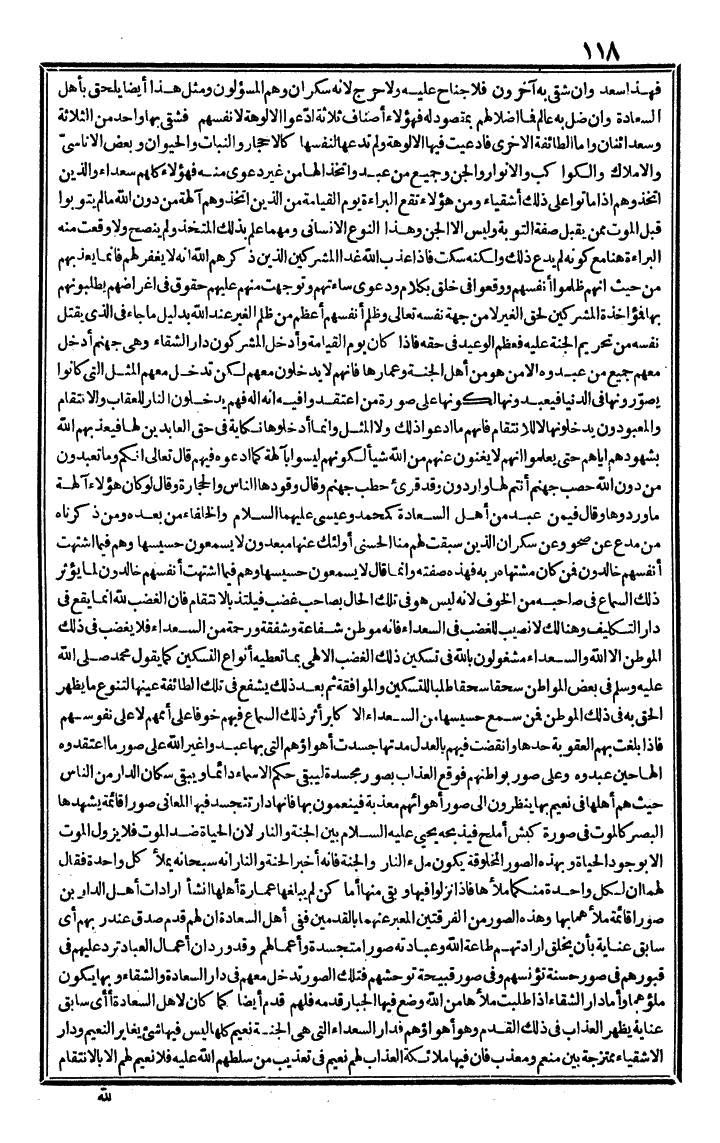 ١١٨
فهذا سعد وان شقى به آخرون فلا جناح عليه ولا حرج لانه سكران وهم المسؤلون ومثل هذا أيضا يلحق بأهل
السعادة وان ضل به عالم فما ضلالهم بمقصود له فهؤلاء أصناف ثلاثة ادّعوا الالوهة لانفسهم فشقى بها واحد من الثلاثة
وسعد اثنان واما الطائفة الاخرى فادعيت فيها الالوهة ولم تدعها لنفسها كالاحجار والنبات والحيوان وبعض الاناسىّ
والاملاك والكواكب والانوار والجن وجميع من عبد واتخذ الها من غير دعوى منه فهؤلاء كلهم سعداء والذين
اتخذوهم اذا ماتوا على ذلك أشقياء ومن هؤلاء تقع البراءة يوم القيامة من الذين اتخذوهم آلهة من دون الله ما لم يتوبوا
قبل الموت ممن يقبل صفة التوبة وليس الا الجن وهذا النوع الانسانى ومهما علم بذلك المتخذ ولم ينصح ولا وقعت منه
البراءة هنا مع كونه لم يدع ذلك ولكنه سكت فاذا عذب الله غدا المشركين الذين ذكرهم الله انه لا يغفر لهم فانما يعذبهم
من حيث انهم ظلموا أنفسهم ووقعوا فى خلق بكلام ودعوى ساءتهم وتوجهت منهم عليهم حقوق فى اغراضهم يطلبونهم
بها فؤاخذة المشركين لحق الغير لا من جهة نفسه تعالى وظلم أنفسهم أعظم من ظلم الغير عند الله بدليل ما جاء فى الذى يقتل
نفسه من تحريم الجنة عليه فعظم الوعيد فى حقه فاذا كان يوم القيامة وأدخل المشركون دار الشقاء وهى جهنم أدخل
معهم جميع من عبدوه الا من هو من أهل الجنة وعمارها فانهم لا يدخلون معهم لكن تدخل معهم المثل التى كانوا
يصوّرونها فى الدنيا فيعبدونها لكونها على صورة من اعتقدوا فيه انه اله فهم يدخلون النار للعقاب والانتقام
والمعبودون يدخلونها لا للانتقام فانهم ما ادعوا ذلك ولا المثل وانما أدخلوها نكاية فى حق العابدين لها فيعذبهم الله
بشهودهم اياهم حتى يعلموا انهم لا يغنون عنهم من الله شيأ لكونهم ليسوا بآلهة كما ادعوه فيهم قال تعالى انكم وما تعبدون
من دون الله حصب جهنم أنتم لها واردون وقد قرئ حطب جهنم وقال وقودها الناس والحجارة وقال لو كان هؤلاء آلهة
ما وردوها وقال فيمن عبد من أهل السعادة كمحمد وعيسى عليهما السلام والخلفاء من بعده ومن ذكرناه
من مدع عن صحو وعن سكران الذين سبقت لهم منا الحسنى أولئك عنها مبعدون لا يسمعون حسيسها وهم فيما اشتهت
أنفسهم خالدون فمن كان مشتهاه ربه فهذه صفته وانما قال لا يسمعون حسيسها وهم فيما اشتهت أنفسهم خالدون لما يؤثر
ذلك السماع فى صاحبه من الخوف لانه ليس هو فى تلك الحال بصاحب غضب فيلتذ بالانتقام فان الغضب لله انما يقع فى
دار التكليف وهنالك لا نصيب للغضب فى السعداء فانه موطن شفاعة وشفقة ورحمة من السعداء فلا يغضب فى ذلك
الموطن الا الله والسعداء مشغولون بالله فى تسكين ذلك الغضب الالهى بما تعطيه أنواع التسكين كما يقول محمد صلى الله
عليه وسلم فى بعض المواطن سحقا سحقا طلبا للتسكين والموافقة ثم بعد ذلك يشفع فى تلك الطائفة عينها لتنوع ما يظهر
الحق به فى ذلك الموطن فمن سمع حسيسها من السعداء الاكابر أثر ذلك السماع فيهم خوفا على أممهم لا على نفوسهم
فاذا بلغت بهم العقوبة حدها وانقضت فيهم بالعدل مدتها جسدت أهواؤهم التى بها عبدوا غير الله على صور ما اعتقدوه
الها حين عبدوه وعلى صور بواطنهم فوقع العذاب بصور مجسدة ليبقى حكم الاسماء دائما ويبقى سكان الدار من الناس
حيث هم أهلها فى نعيم بها ينظرون الى صور أهوائهم معذبة فينعمون بها فانها دار تتجسد فيها المعانى صورا قائمة يشهدها
البصر كالموت فى صورة كبش أملح فيذبحه يحيى عليه السلام بين الجنة والنار لان الحياة ضد الموت فلا يزول الموت
الا بوجود الحياة وبهذه الصور المخلوقة يكون ملء النار والجنة فانه أخبر الجنة والنار انه سبحانه يملأ كل واحدة فقال
لهما ان لكل واحدة منكما ملأها فاذا نزلوا فيها وبقى منها أما كن لم يبلغها عمارة أهلها انشأ ارادات أهل الدارين
صورا قائمة ملأهما بها وهذه الصور من الفرقتين المعبر عنهما بالقدمين ففى أهل السعادة ان لهم قدم صدق عند ربهم أى
سابق عناية بأن يخلق ارادتهم طاعة الله وعبادته صورا متجسدة وأعمالهم وقد ورد ان أعمال العباد ترد عليهم فى
قبورهم فى صور حسنة تؤنسهم وفى صور قبيحة توحشهم فتلك الصور تدخل معهم فى دار السعادة والشقاء وبها يكون
ملؤهما وأما دار الشقاء اذا طلبت ملأها من الله وضع فيها الجبار قدمه فلهم قدم أيضا كما كان لاهل السعادة أى سابق
عناية يظهر العذاب فى ذلك القدم وهو أهواؤهم فدار السعداء التى هى الجنة نعيم كلها ليس فيها شئ يغاير النعيم ودار
الاشقياء ممتزجة بين منعم ومعذب فان فيها ملائكة العذاب لهم نعيم فى تعذيب من سلطهم الله عليه فلا نعيم لهم الا بالانتقام
لله